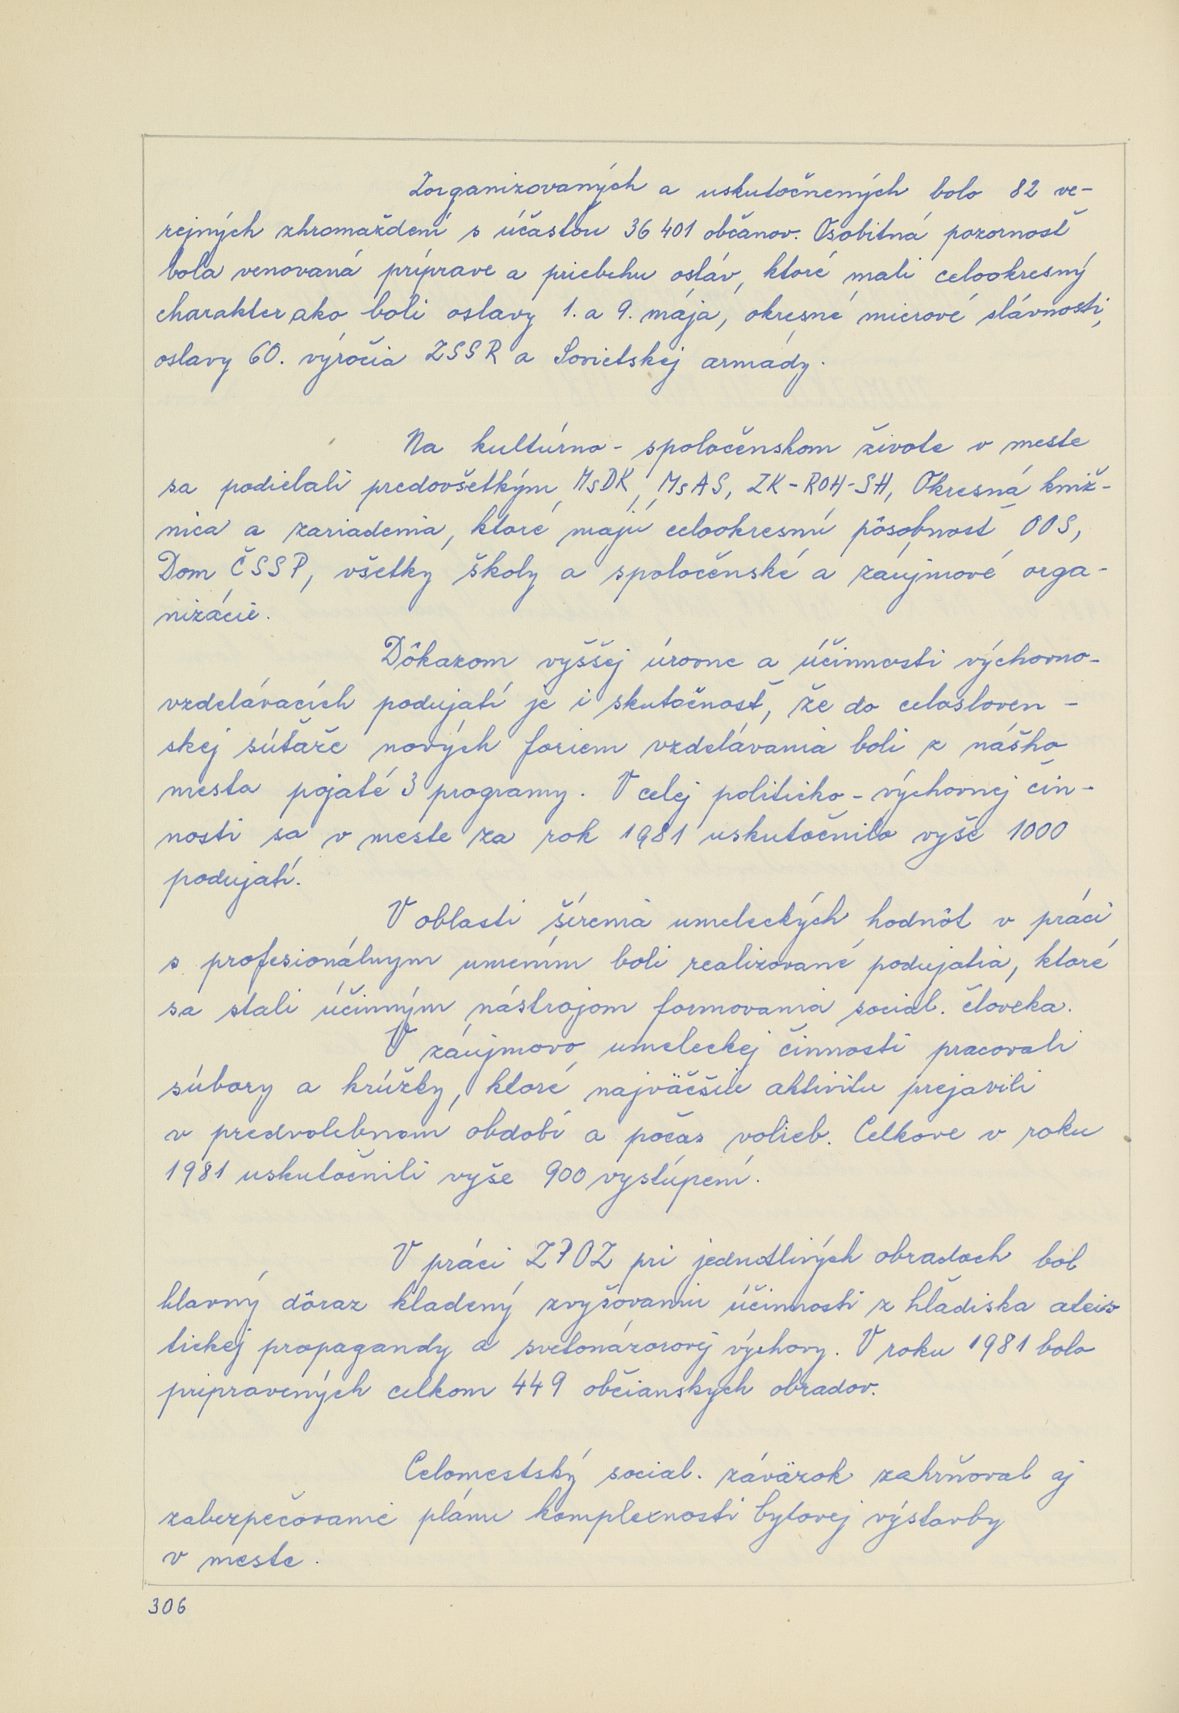 Zorganizovaných a uskutočnených bolo 82 ve-
rejných zhromaždení s účasťou 36 401 občanov. Osobitná pozornosť
bola venovaná príprave a priebehu osláv, ktoré mali celookresný
charakter ako boli oslavy 1. a 9. mája, okresné mierové slávnosti,
oslavy 60. výročia ZSSR a Sovietskej armády.
Na kultúrno - spoločenskom živote v meste
sa podielali predovšetkým MsDK, MsAS, ZK - ROH - SH, Okresná kniž-
nica a zariadenia, ktoré majú celookresnú pôsobnosť OOS,
Dom ČSSP, všetky školy a spoločenské a zaujmové orga-
nizácie.
Dôkazom vyššej úrovne a účinnosti výchovno-
vzdelávacích podujatí je i skutočnosť, že do celosloven -
skej súťaže nových foriem vzdelávania boli z nášho
mesta pojaté 3 programy. V celej politicko - výchovnej čin-
nosti sa v meste za rok 1981 uskutočnilo vyše 1000
podujatí.
V oblasti šírenia umeleckých hodnôt v práci
s profesionálnym umením boli realizované podujatia, ktoré
sa stali účinným nástrojom formovania social. človeka.
V záujmovo umeleckej činnosti pracovali
súbory a krúžky, ktoré najväčšiu aktivitu prejavili
v predvolebnom období a počas volieb. Celkove v roku
1981 uskutočnili vyše 900 vystúpení.
V práci ZPOZ pri jednotlivých obradoch bol
hlavný dôraz kladený zvyšovaniu účinnosti z hľadiska ateis
tickej propagandy a svetonázorovej výchovy. V roku 1981 bolo
pripravených celkom 449 občianskych obradov.
Celomestský social. záväzok zahrňoval aj
zabezpečovanie plánu komplexnosti bytovej výstavby
v meste.
306